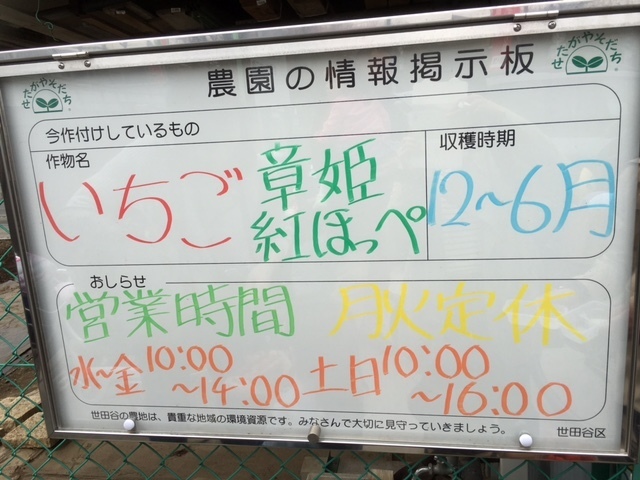 せたがやそだち
せたがやそだち
農園の情報掲示板
今作付けしているもの
作物名
いちご
章姫
紅ほっぺ
収穫時期
12~6月
おしらせ
営業時間 月火定休
水~金10:00 土日10:00
~14:00 ~16:00
世田谷の農地は、貴重な地域の環境資源です。みなさんで大切に見守っていきましょう。
世田谷区